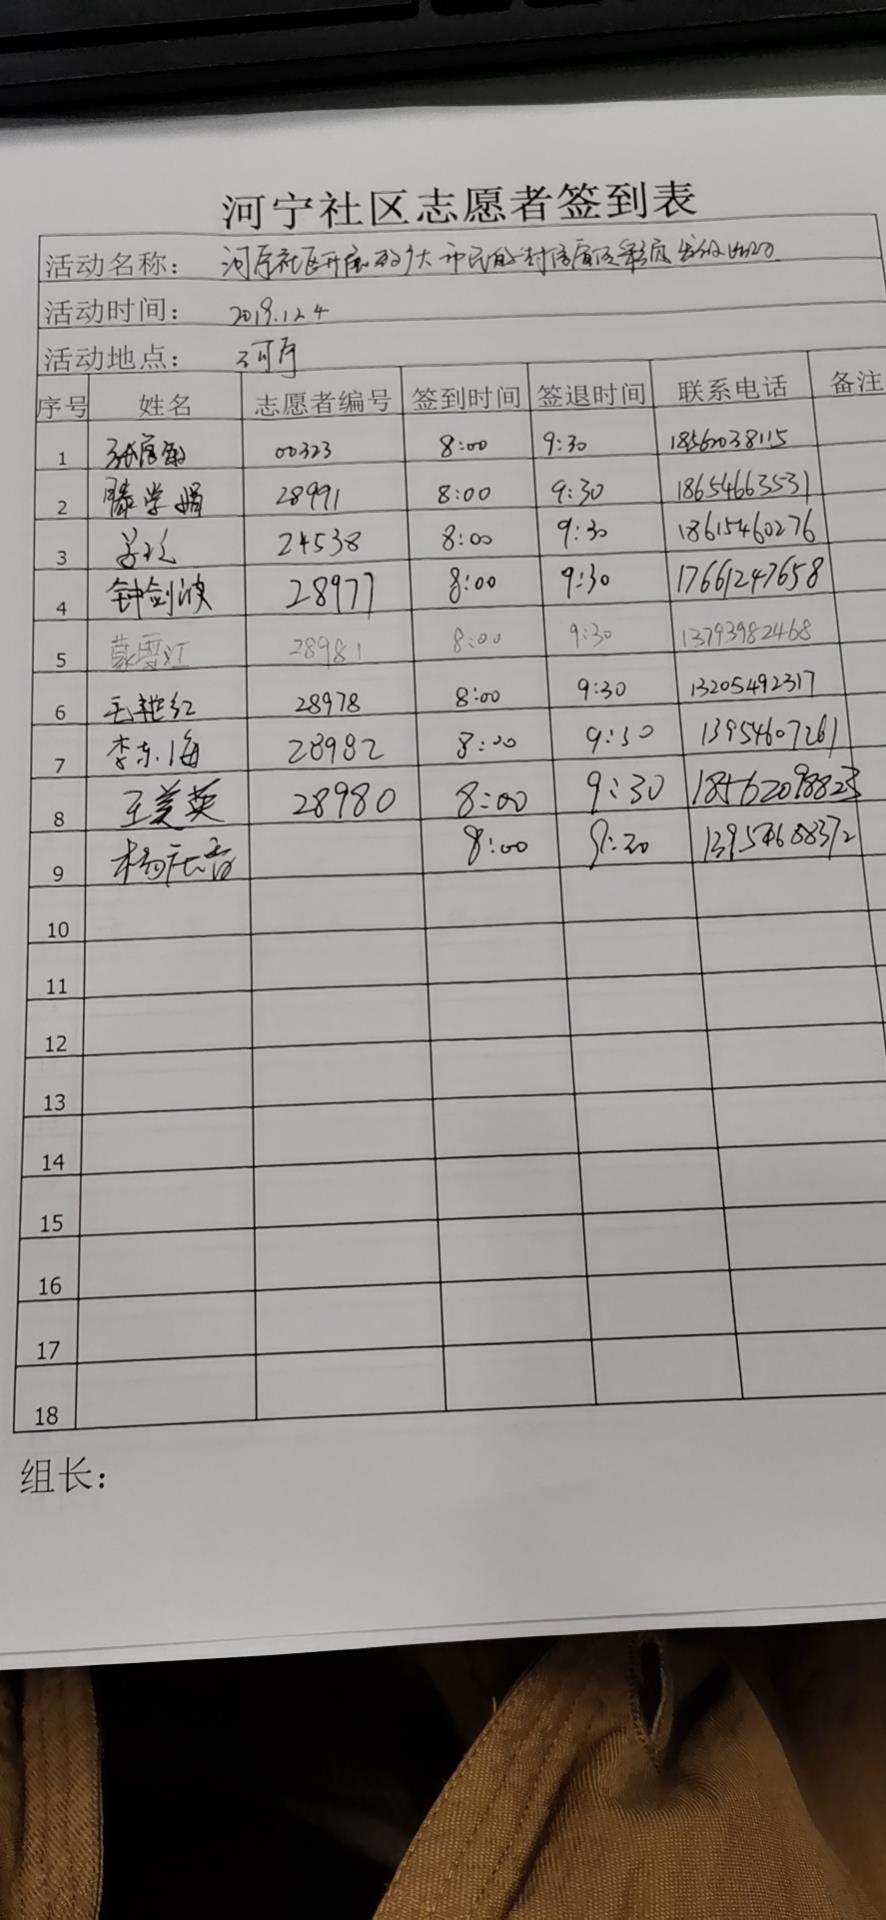 河宁社区志愿者签到表
活动名称：
活动时间： 2019.12.4
活动地点： 河宁
序号 姓名 志愿者编号 签到时间 签退时间 联系电话 备注
1 00323 8:00 9:30 18562038115
2 滕学娟 28991 8:00 9:30 18654663531
3 24538 8:00 9:30 18615460276
4 钟剑波 28977 8:00 9:30 17661247658
5 28981 8:00 9:30 13793982468
6 王艳红 28978 8:00 9:30 13205492317
7 李东海 28982 8:00 9:30 13954607261
8 王美英 28980 8:00 9:30 18562098823
9 8:00 9:30 13954688372
10
11
12
13
14
15
16
17
18
组长：